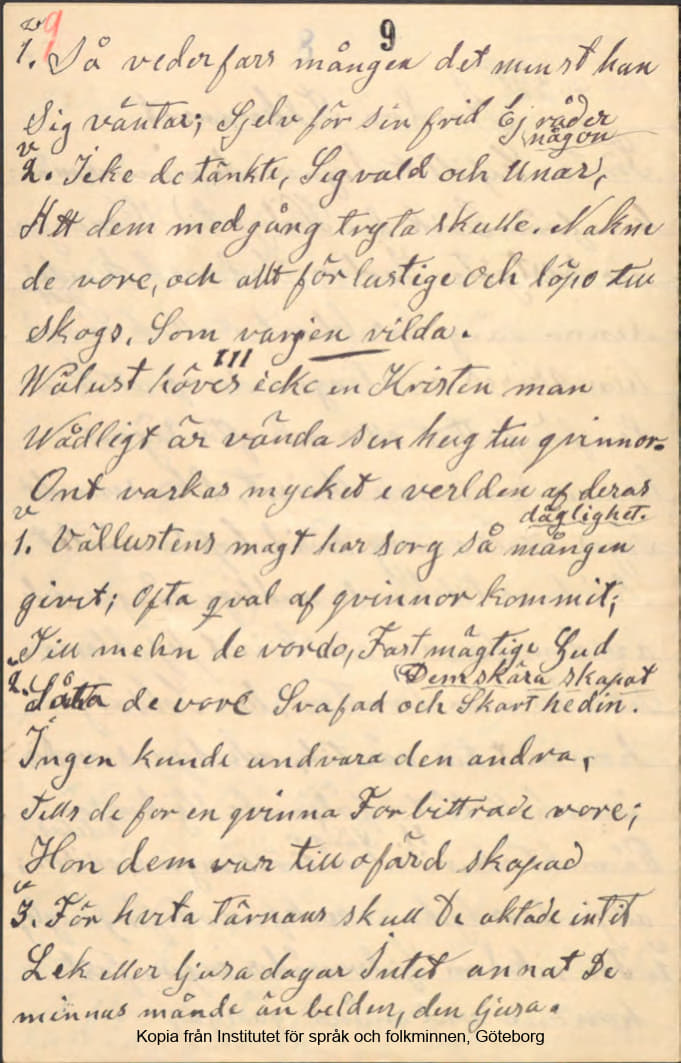 9
9
v
1. Så vederfars mången det minst han
Sig väntar; Sjelv för sin frid Ej råder
någon
v
2. Icke de tänkte, Sigvald och Unar,
Att dem medgång tryta skulle. Nakne
de vore, och allt förlustige och löpo till
skogs, Som vargen vilda.
III
Wälust höves icke en Kristen man
Wådligt är vända sin hug till qvinnor
Ont vaskas mycket i verlden af deras
däglighet.
v
1. Vällustens magt har sorg så mången
givit; Ofta qval af qvinnor kommit;
Till mehn de vordo, Fast mägtige Gud
Dem skära skapat
2. Såta de vore Svafad och Skarthedin.
Ingen kunde undvara den andra,
Tills de for en qvinna Forbittrade vore;
Hon dem var till ofärd skapad
v
3. För hvita tärnans skull De aktade intit
Lek eller ljusa dagar Intet annat De
minnas månde än belden, den ljusa.
Kopia från Institutet för språk och folkminnen, Göteborg